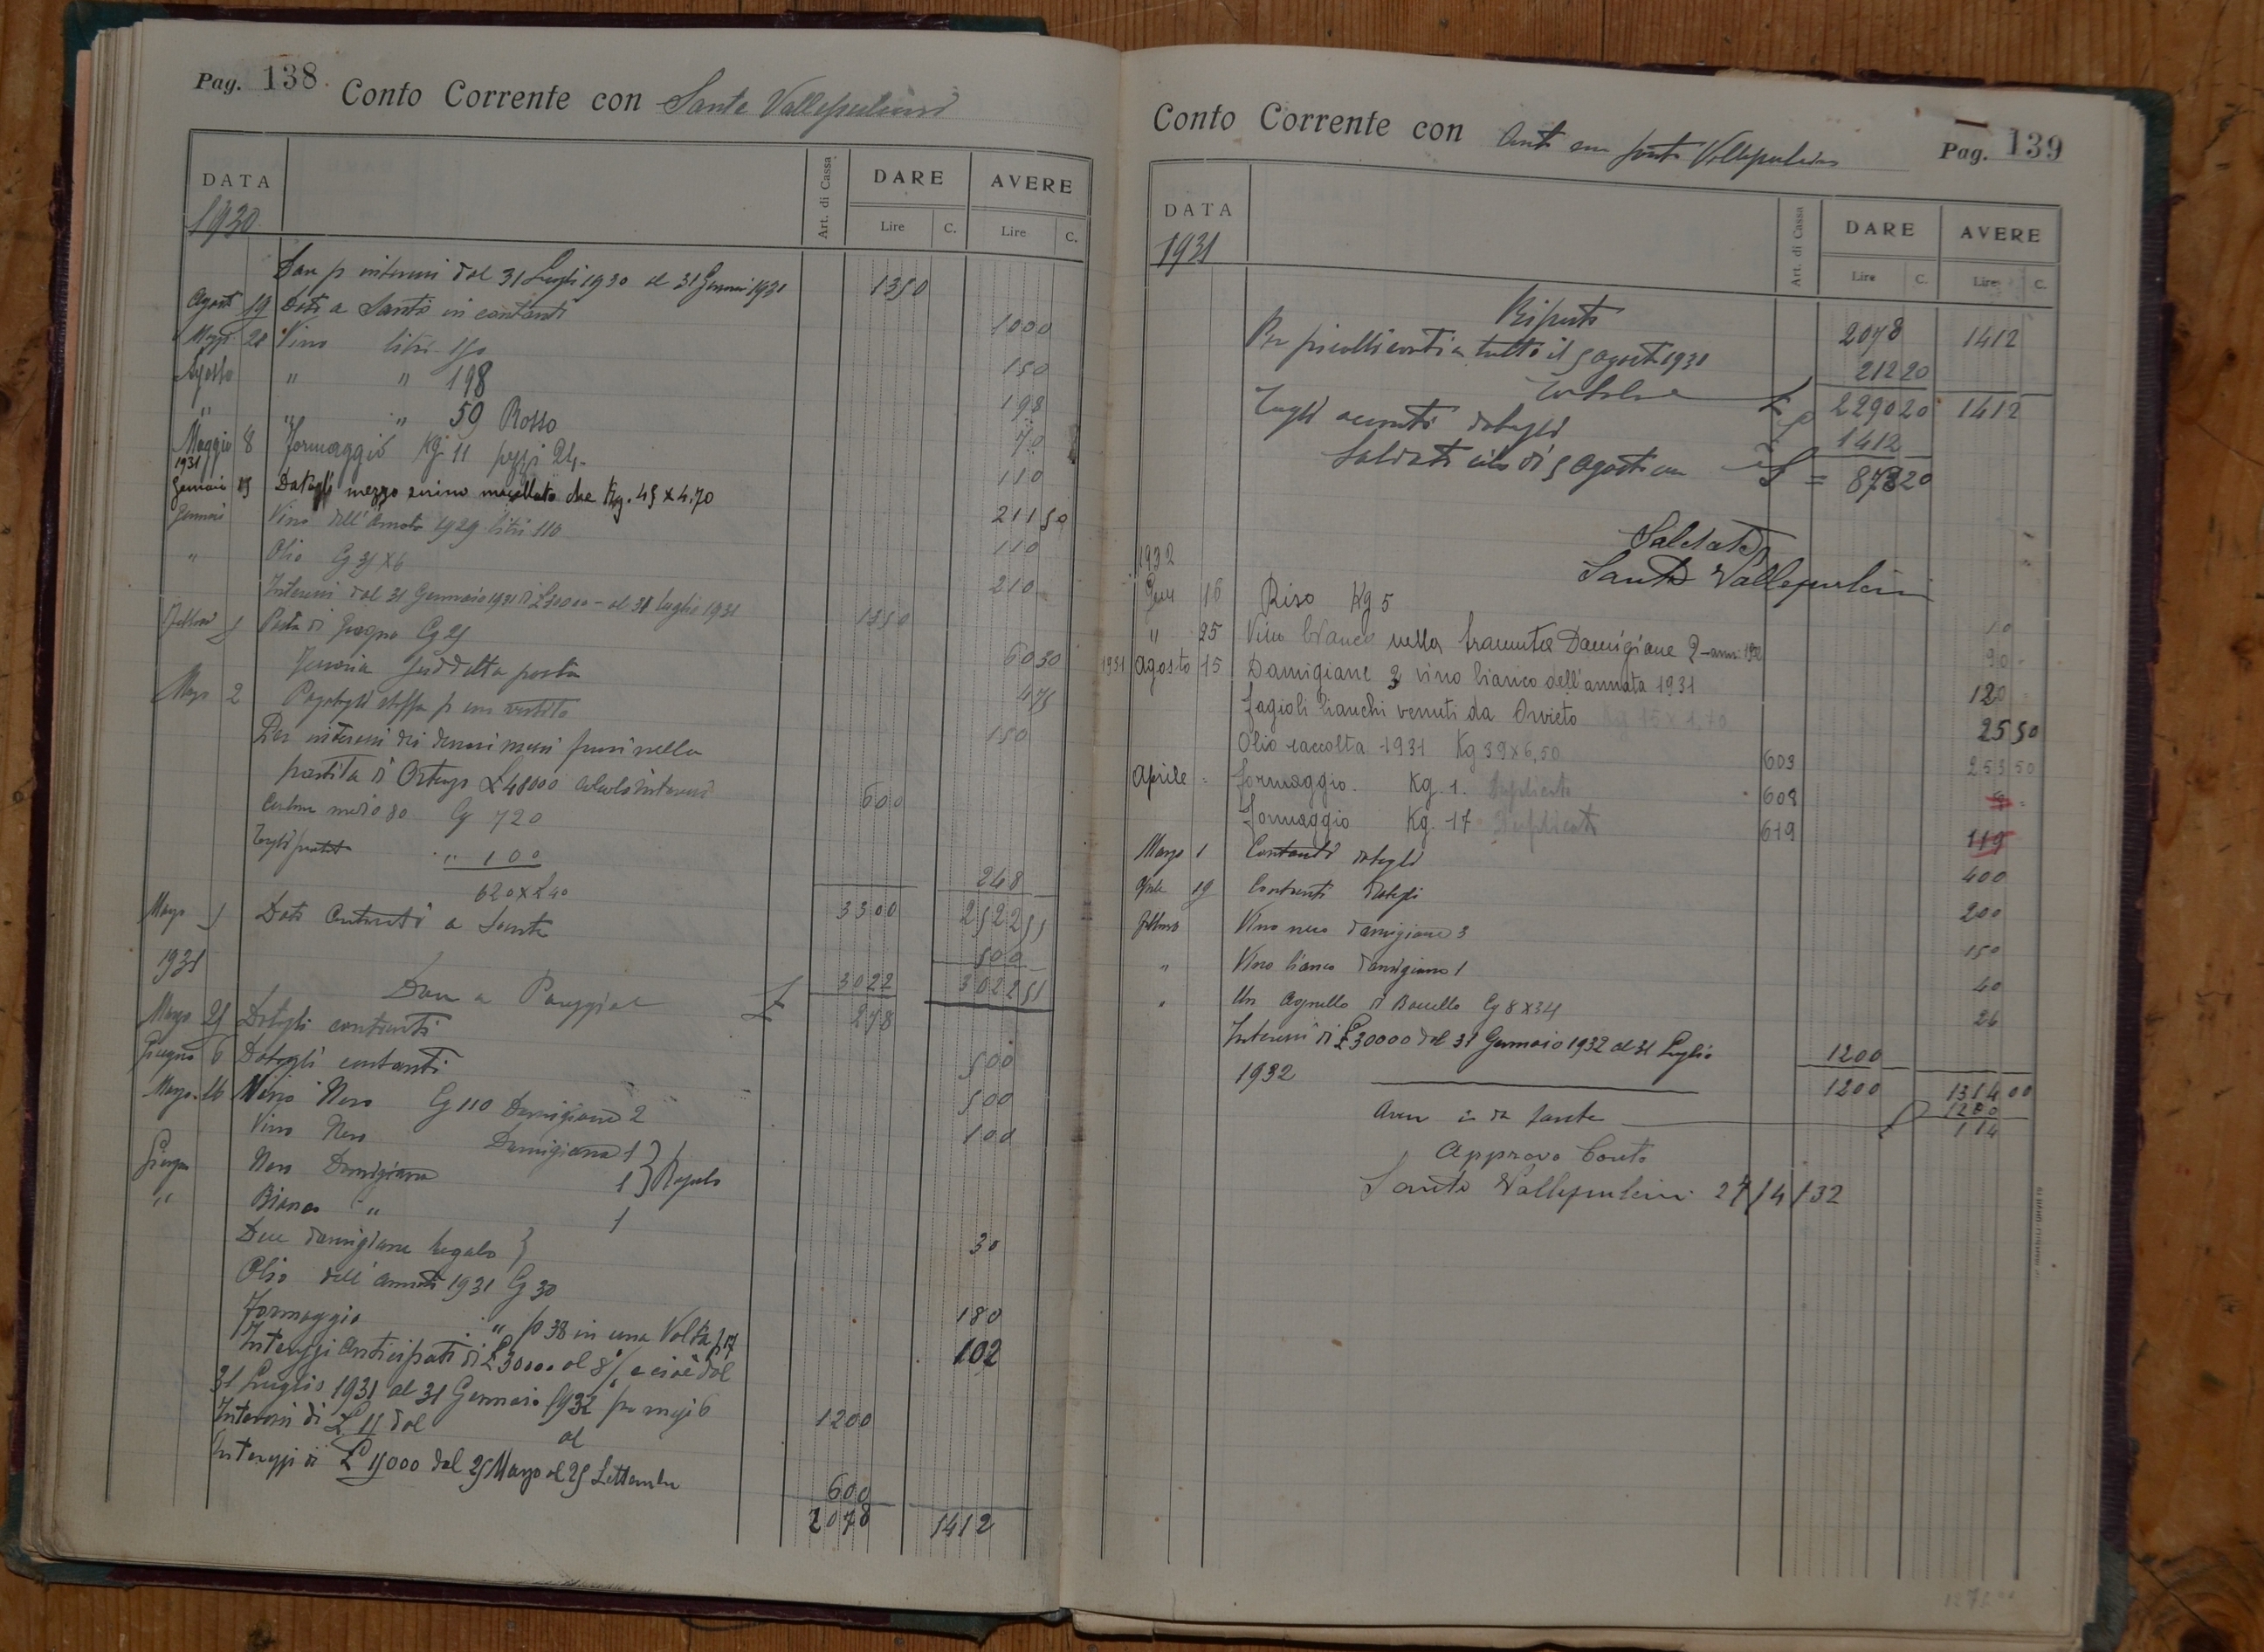 Pag. 138.
Conto Corrente con Sante Vallepulcini
DATA
Art. di Cassa
DARE
AVERE
Lire C. Lire C.
1930
Dare p interessi dal 31 Luglio 1930 al 31 Gennaio 1931 1350
Agosto 19 Dati a Sante in contanti 1000
Maggio 28 Vino litri 150 150
Agosto " " 198 198
" " " 50 Rosso 70
Maggio 8 Formaggio Kg 11 pezzi 2 110
1931
Gennaio 15 Datogli mezzo suino macellato che Kg. 45 x 4,70 211 50
Gennaio Vino dell'annata 1929 litri 110 110
" Olio Cg 35 x 6 210
Interessi dal 31 Gennaio 1931 di £30000 - al 31 Luglio 1931 1350
Pasta di Cg 25 60 30
suddetta pasta 475
Marzo 2 Pagatogli stoffa p un vestito 150
Per interessi dei denari messi fuori nella
partita di Orteggo £48000 interessi 600
Cg 720
" 100
620 x £40 248
3300 2522 55
Marzo 5 Dati Contanti a Sante 500
1931 3022 3022 55
Dare a Pareggiare £ 278
Marzo 25 Datogli contanti 500
Giugno 6 Datogli contanti 500
Marzo 16 Vino Nero Cg 110 Damigiane 2 100
Vino Nero Damigiana 1
Giugno Nero Damigiana 1 Regalo
" Bianco " 1
Due damigiane regalo 30
Olio dell'annata 1931 Cg 30 180
Formaggio " p 38 in una Volta p 17 102
Interessi anticipati di £30000 al 8% e cioè dal
31 Luglio 1931 al 31 Gennaio 1932 per mesi 6 1200
Interessi di £ 15 dal al
Interessi di £ 15000 dal 25 Marzo al 25 Settembre 600
2078 1412
Conto Corrente con Vallepulcini
Pag. 139
DATA
Art. di Cassa
DARE
AVERE
Lire C. Lire C.
1931
Riporto 2078 1412
Per piccoli conti a tutto il 5 agosto 1931 212 20
Totale £ 2290 20 1412
Togli acconti datogli 1412
Saldati oggi di 5 Agosto £ = 878 20
Saldato
Sante Vallepulcini
1932
Genn 16 Riso Kg 5 10
" 25 Vino bianco nella Damigiane 2 - anno 1932 90 -
1931 Agosto 15 Damigiane 3 vino bianco dell'annata 1931 120 =
Fagioli bianchi venuti da Orvieto Kg 15 x 1,70 25 50
Olio raccolta 1931 Kg 39 x 6,50 603 253 50
Aprile = Formaggio. Kg. 1. Duplicato 608
Formaggio Kg. 17 Duplicato 619 119
Marzo 1 Contanti datogli 400
Aprile 19 Contanti datogli 200
Febbraio Vino nero damigiane 3 150
" Vino bianco damigiana 1 40
" Un Agnello di Cg 8 x 3¼ 26
Interessi di £30000 dal 31 Gennaio 1932 al 31 Luglio
1932 1200
1200 1314 00
1200
114
Approvo Conto
Sante Vallepulcini 27/4/32